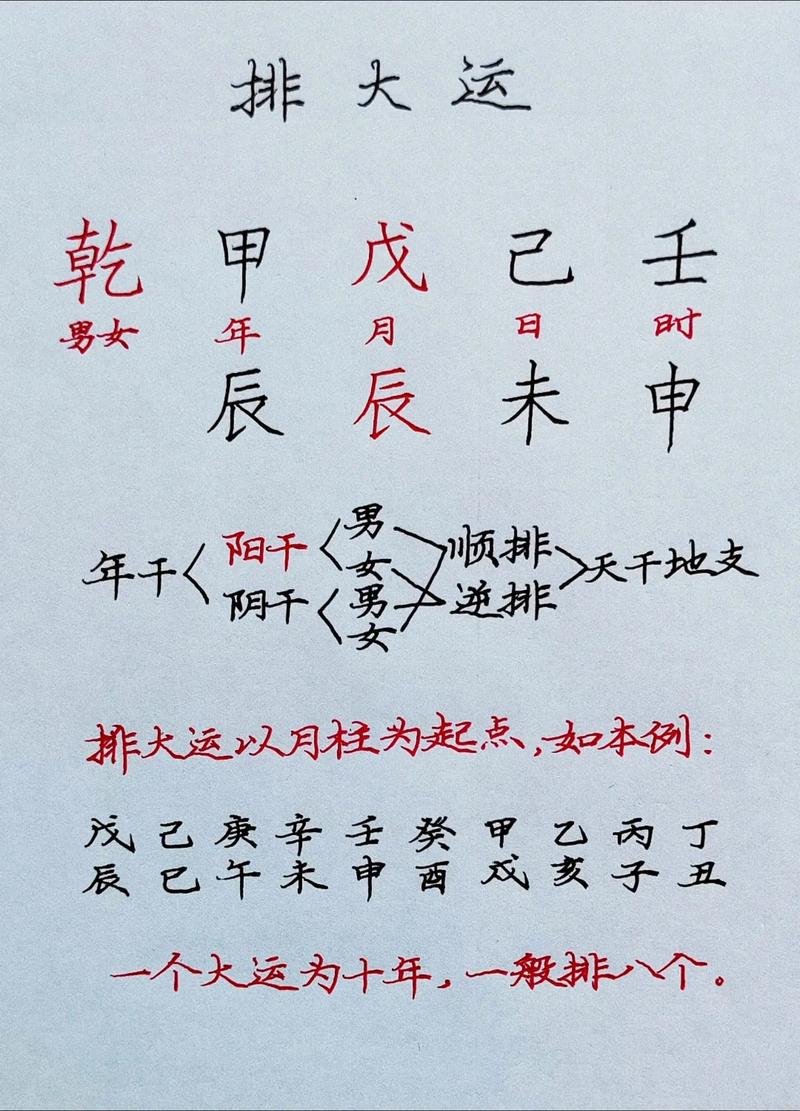 排大运
乾 甲 戊 己 壬
男女 年 月 日 时
辰 辰 未 申
男
年干 阳干 女 顺排 天干地支
阴干 男 逆排
女
排大运以月柱为起点,如本例:
戊 己 庚 辛 壬 癸 甲 乙 丙 丁
辰 巳 午 未 申 酉 戌 亥 子 丑
一个大运为十年,一般排八个。